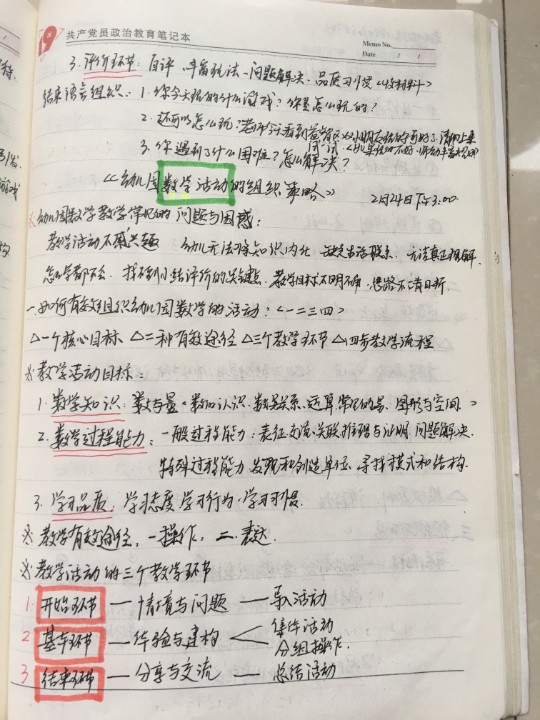 共产党员政治教育笔记本
Memo No.
Date / /
3. 评价环节: 自评、丰富玩法—问题解决、品质习惯
结束语言组织: 1. 你今天玩的什么游戏? 你是怎么玩的?
2. 还可以怎么玩?
3. 你遇到了什么困难? 怎么解决?
《幼儿园数学活动的组织策略》 2月24日下午3:00
※幼儿园数学教学常见的问题与困惑:
教学活动不感兴趣 幼儿无法将知识内化 缺乏生活联系 无法真正理解
找不到小结评价的关键点 教学目标不明确, 思路不清晰
一. 如何有效组织幼儿园数学的活动: <一二三四>
△一个核心目标 △二种有效途径 △三个教学环节 △四步教学流程
※教学活动目标:
1. 数学知识: 数与量<数的认识. 数量关系. 运算 图形与空间>
2. 数学过程能力: 一般过程能力: 表征交流. 关联推理与证明. 问题解决.
特殊过程能力 发现和创造单位、寻找模式和结构.
3. 学习品质. 学习态度 学习行为. 学习习惯.
※教学有效途径. 一操作, 二. 表达.
※教学活动的三个教学环节
1 开始环节 — 情境与问题 — 导入活动
2 基本环节 — 体验与建构 < 集体活动 分组操作.
3 结束环节 — 分享与交流 — 总结活动